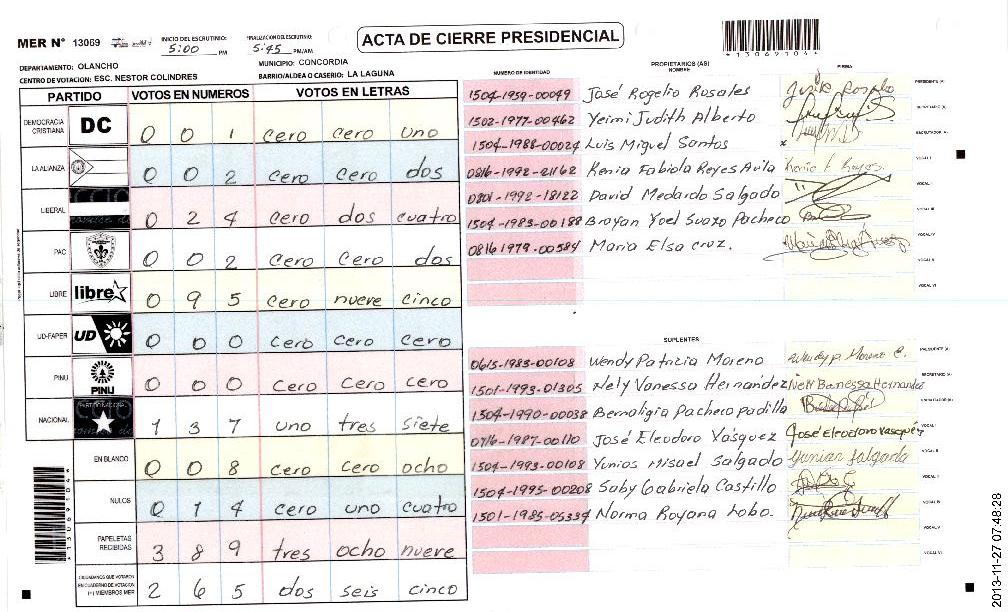 MER N° 13069
INICIO DEL ESCRUTINIO: 5:00 PM
FINALIZACION DEL ESCRUTINIO: 5:45 PM/AM
ACTA DE CIERRE PRESIDENCIAL
*13069104*
DEPARTAMENTO: OLANCHO
MUNICIPIO: CONCORDIA
CENTRO DE VOTACION: ESC. NESTOR COLINDRES
BARRIO/ALDEA O CASERIO: LA LAGUNA
PARTIDO VOTOS EN NUMEROS VOTOS EN LETRAS
DEMOCRACIA CRISTIANA DC 0 0 1 cero cero uno
LA ALIANZA 0 0 2 cero cero dos
LIBERAL 0 2 4 cero dos cuatro
PAC 0 0 2 cero cero dos
LIBRE libre 0 9 5 cero nueve cinco
UD-FAPER UD 0 0 0 cero cero cero
PINU PINU 0 0 0 cero cero cero
NACIONAL 1 3 7 uno tres siete
EN BLANCO 0 0 8 cero cero ocho
NULOS 0 1 4 cero uno cuatro
PAPELETAS RECIBIDAS 3 8 9 tres ocho nueve
CIUDADANOS QUE VOTARON EN CUADERNO DE VOTACION (+) MIEMBROS MER 2 6 5 dos seis cinco
*13069104*
NUMERO DE IDENTIDAD PROPIETARIOS (AS) NOMBRE FIRMA
1504-1959-00049 José Rogelio Rosales PRESIDENTE (A)
1502-1977-00462 Yeimi Judith Alberto SECRETARIO (A)
1504-1988-00024 Luis Miguel Santos ESCRUTADOR (A)
0816-1992-21162 Kenia Fabiola Reyes Avila Kenia F. Reyes. VOCAL I
0801-1992-18122 David Medardo Salgado VOCAL II
1504-1983-00188 Brayan Yoel Suazo Pacheco VOCAL III
0816 1979-00584 Maria Elsa cruz. VOCAL IV
VOCAL V
VOCAL VI
SUPLENTES
0615-1983-00108 Wendy Patrizia Moreno Wendy p Moreno C. PRESIDENTE (A)
1501-1993-01305 Nely Vanessa Hernandez Nely Banessa Hernandez SECRETARIO (A)
1504-1990-00038 Bernaligia Pacheco Padilla ESCRUTADOR (A)
0716-1987-00110 José Eleodoro Vásquez José Eleodoro Vasquez VOCAL I
1504-1993-00108 Yunios Misael Salgado Yunior Salgado VOCAL II
1504-1995-00208 Saby Gabriela Castillo VOCAL III
1501-1985-05334 Norma Royana Lobo. VOCAL IV
VOCAL V
VOCAL VI
2013-11-27 07:48:28